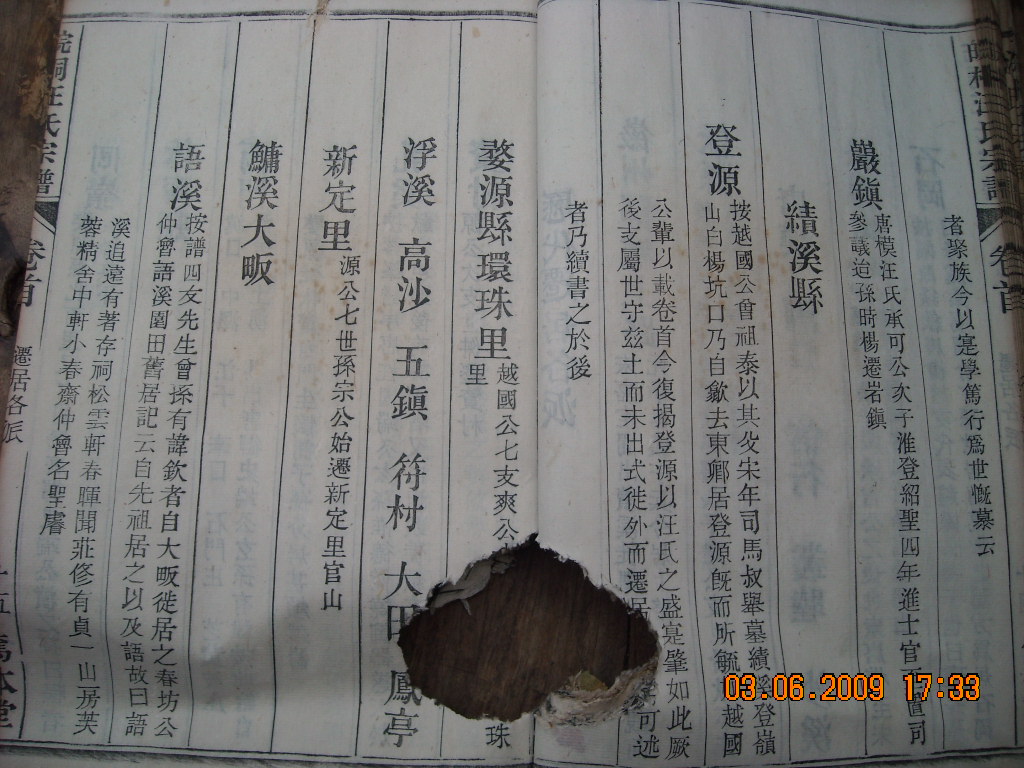 者聚族今以寔學篤行爲世慨慕云
巖鎭
唐模汪氏承可公次子淮登紹聖四年進士官 置司
參議迨孫時楊遷岩鎭
績溪縣
登源
按越國公曾祖泰以其父宋年司馬叔舉墓績溪登嶺
山白楊坑口乃自歙去東鄉居登源旣而所毓 越國
公輩以載卷首今復揭登源以汪氏之盛寔肇如此厥
後支屬世守玆土而未出式徙外而遷居 可述
者乃續書之於後
婺源縣環珠里
越國公七支爽公 珠
里
浮溪 高沙 五鎭 符村 大田 鳳亭
新定里
源公七世孫宗公始遷新定里官山
鱅溪大畈
語溪
按譜四友先生曾孫有諱欽者自大畈徙居之春坊公
仲魯語溪園田舊居記云自先祖居之以及語故曰語
溪追遠有著存祠松雲軒春暉聞莊修有貞一山房芙
蓉精舍中軒小春齋仲魯名聖麐
皖桐汪氏宗譜 卷首 遷居各派
卷首
03.06.2009 17:33